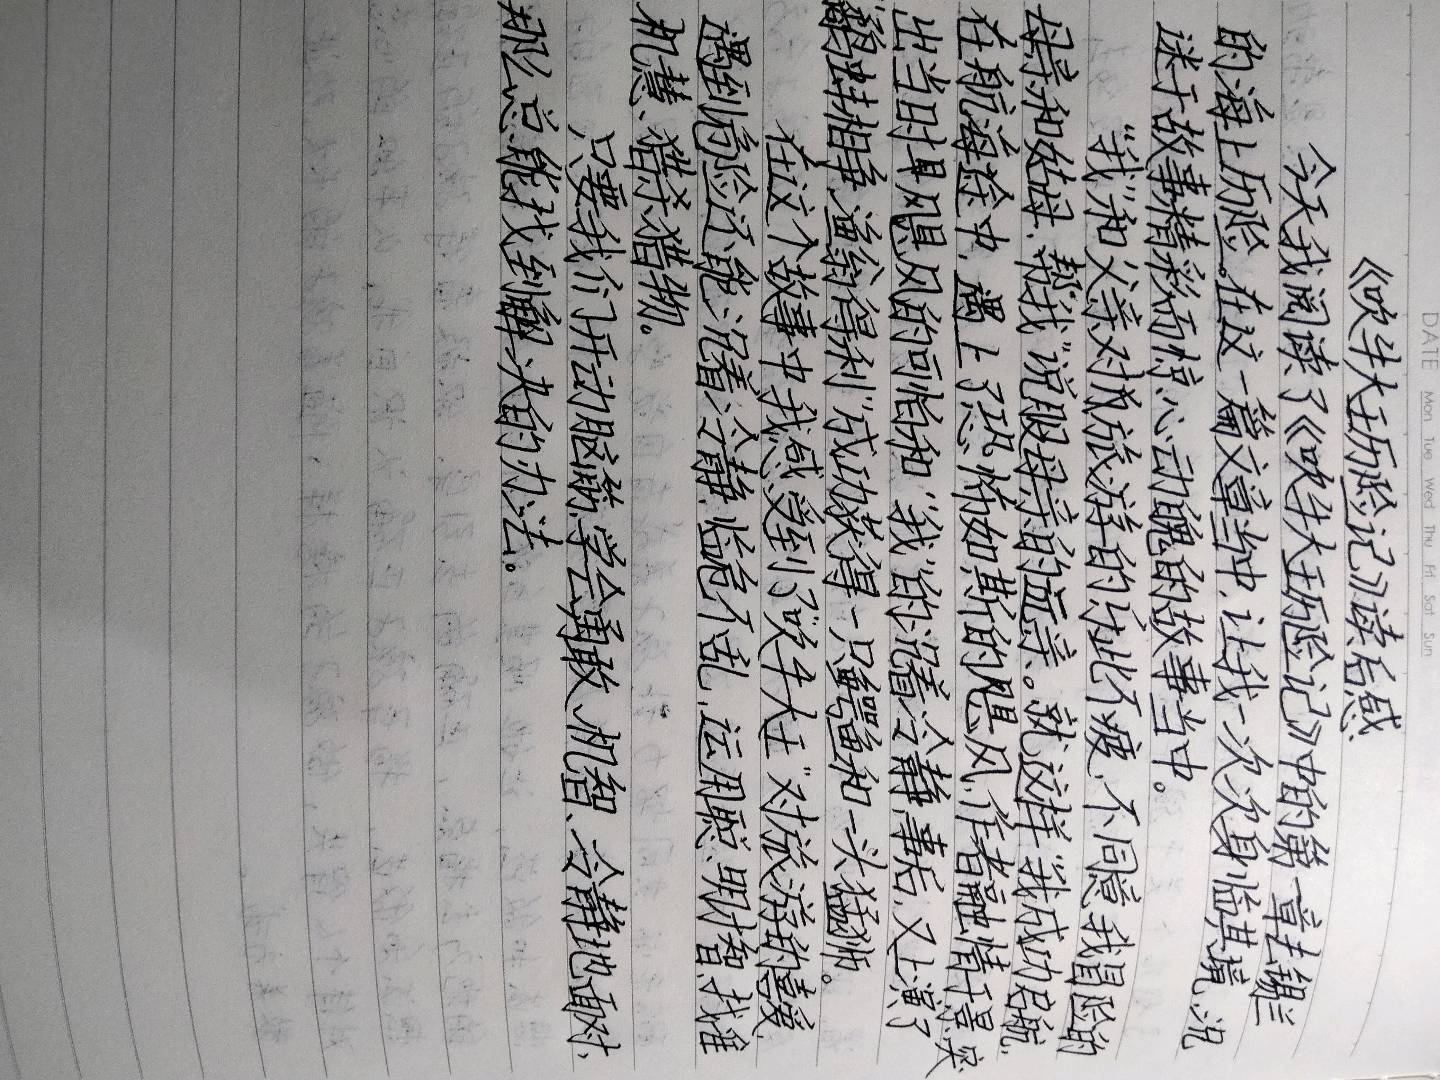 DATE Mon Tue Wed Thu Fri Sat Sun
《吹牛大王历险记》读后感
今天我阅读了《吹牛大王历险记》中的第一章去锡兰
的海上历险。在这一篇文章当中,让我一次次身临其境,沉
迷于故事精彩而惊心动魄的故事当中。
"我"和父亲对于旅游的向此不疲,不同意我冒险的
母亲和姑母,帮"我"说服母亲的远亲。就这样"我"成功启航,
在航海途中,遇上了恐怖如斯的飓风,作者融情于景突
出当时飓风的可怕和"我"的沉着冷静,事后,又上演了
"鹬蚌相争渔翁得利"成功获得一只鳄鱼和一头猛狮。
在这个故事中我感受到了"吹牛大王"对旅游的喜爱,
遇到危险还能沉着冷静,临危不乱,运用聪明才智,找准
机慧,猎杀猎物。
只要我们开动脑筋,学会勇敢、机智、冷静地面对,
那么总能找到解决的办法。